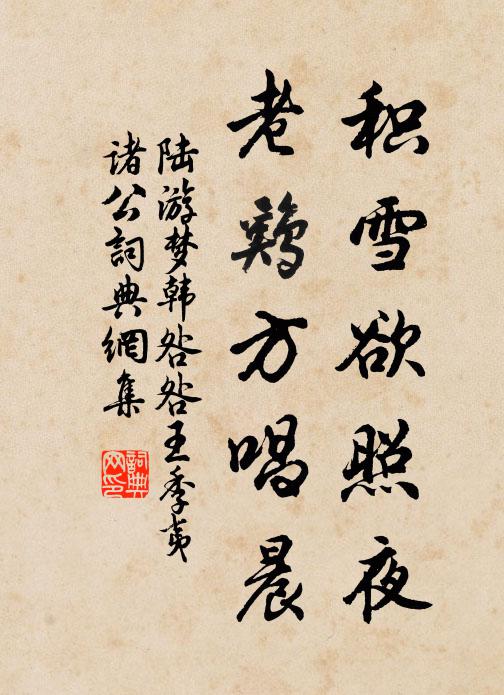 积雪欲照夜
老鸡方唱晨
陆游梦韩咎咎王季夷
诸公詞典網集
詞典网印